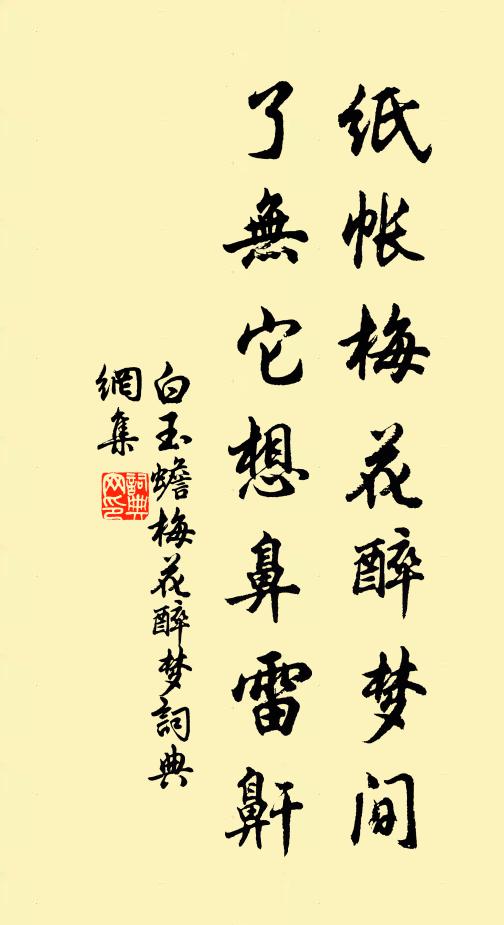 纸帐梅花醉梦间
了無它想鼻雷鼾
白玉蟾梅花醉梦詞典
網集
詞典
网印